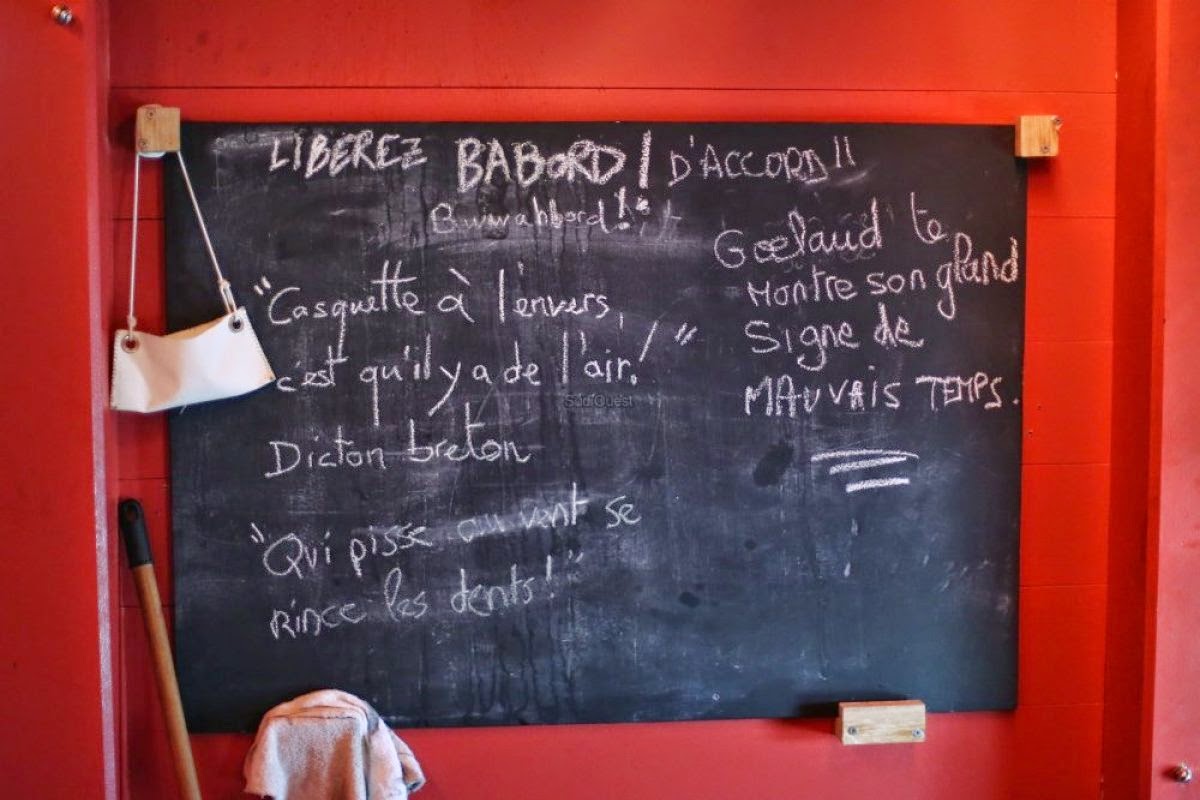 LIBEREZ BABORD! D'ACCORD!!
Bwwahbord!!
"Casquette à l'envers,
c'est qu'il y a de l'air!"
Dicton breton
"Qui pisse au vent se
rince les dents!"
Goelaud te
Montre son gland
Signe de
MAUVAIS TEMPS.
Sud Ouest